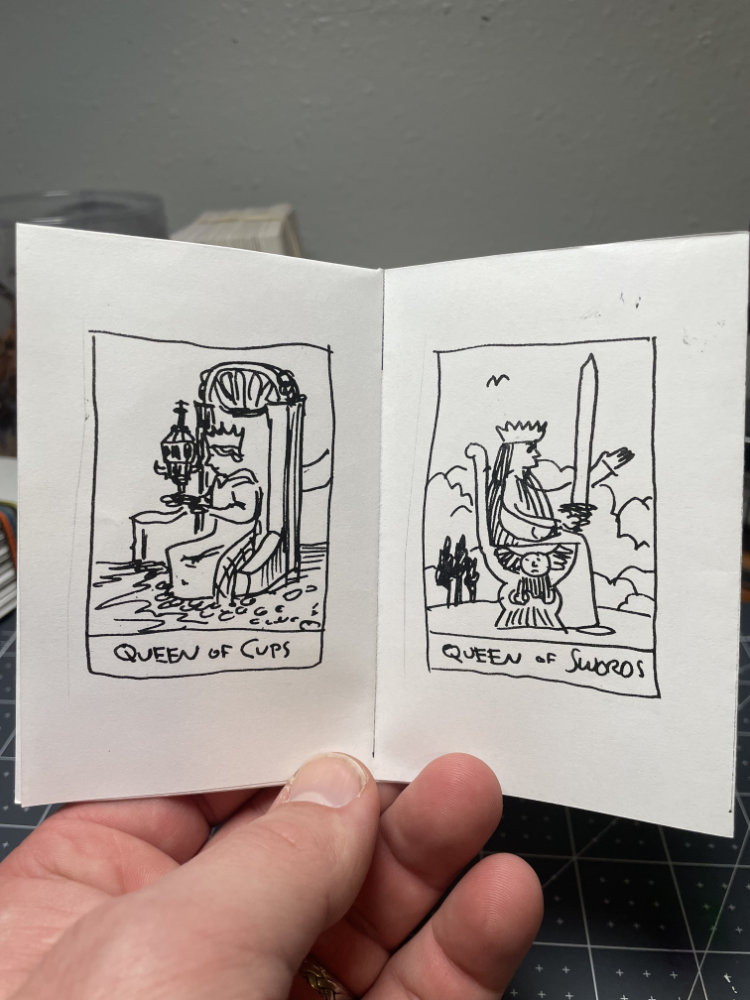 QUEEN OF CUPS
QUEEN OF SWORDS